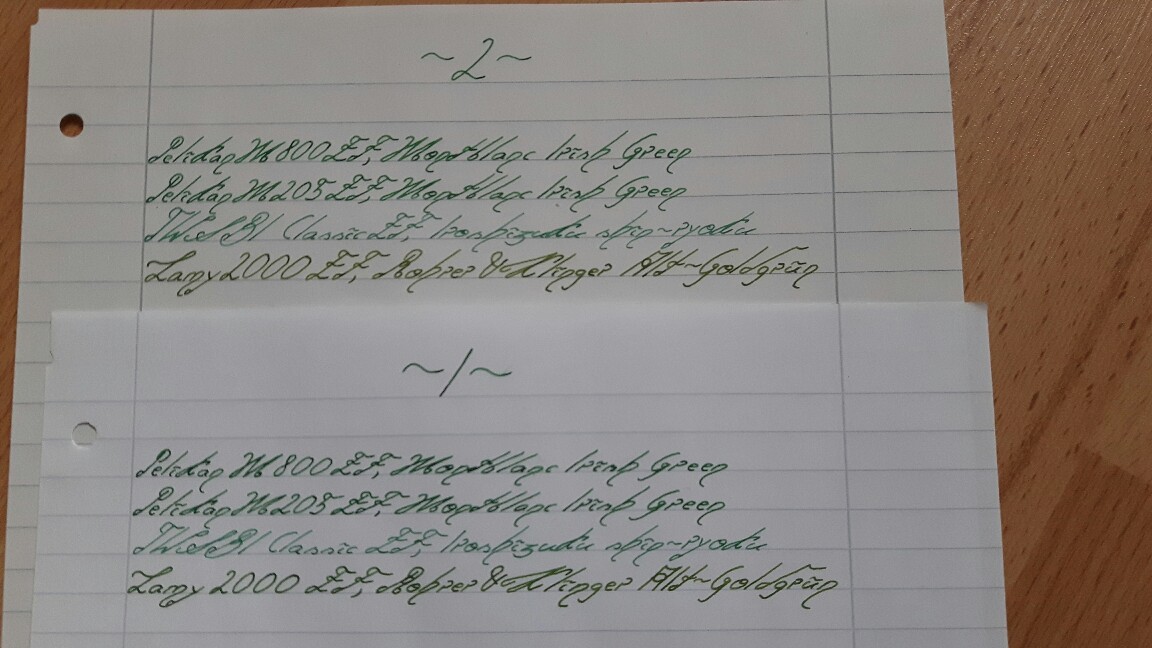 ~2~
Pelikan M800 EF, Montblanc Irish Green
Pelikan M205 EF, Montblanc Irish Green
TWSBI Classic EF, Iroshizuku shin-ryoku
Lamy 2000 EF, Rohrer & Klinger Alt-Goldgrün
~1~
Pelikan M800 EF, Montblanc Irish Green
Pelikan M205 EF, Montblanc Irish Green
TWSBI Classic EF, Iroshizuku shin-ryoku
Lamy 2000 EF, Rohrer & Klinger Alt-Goldgrün